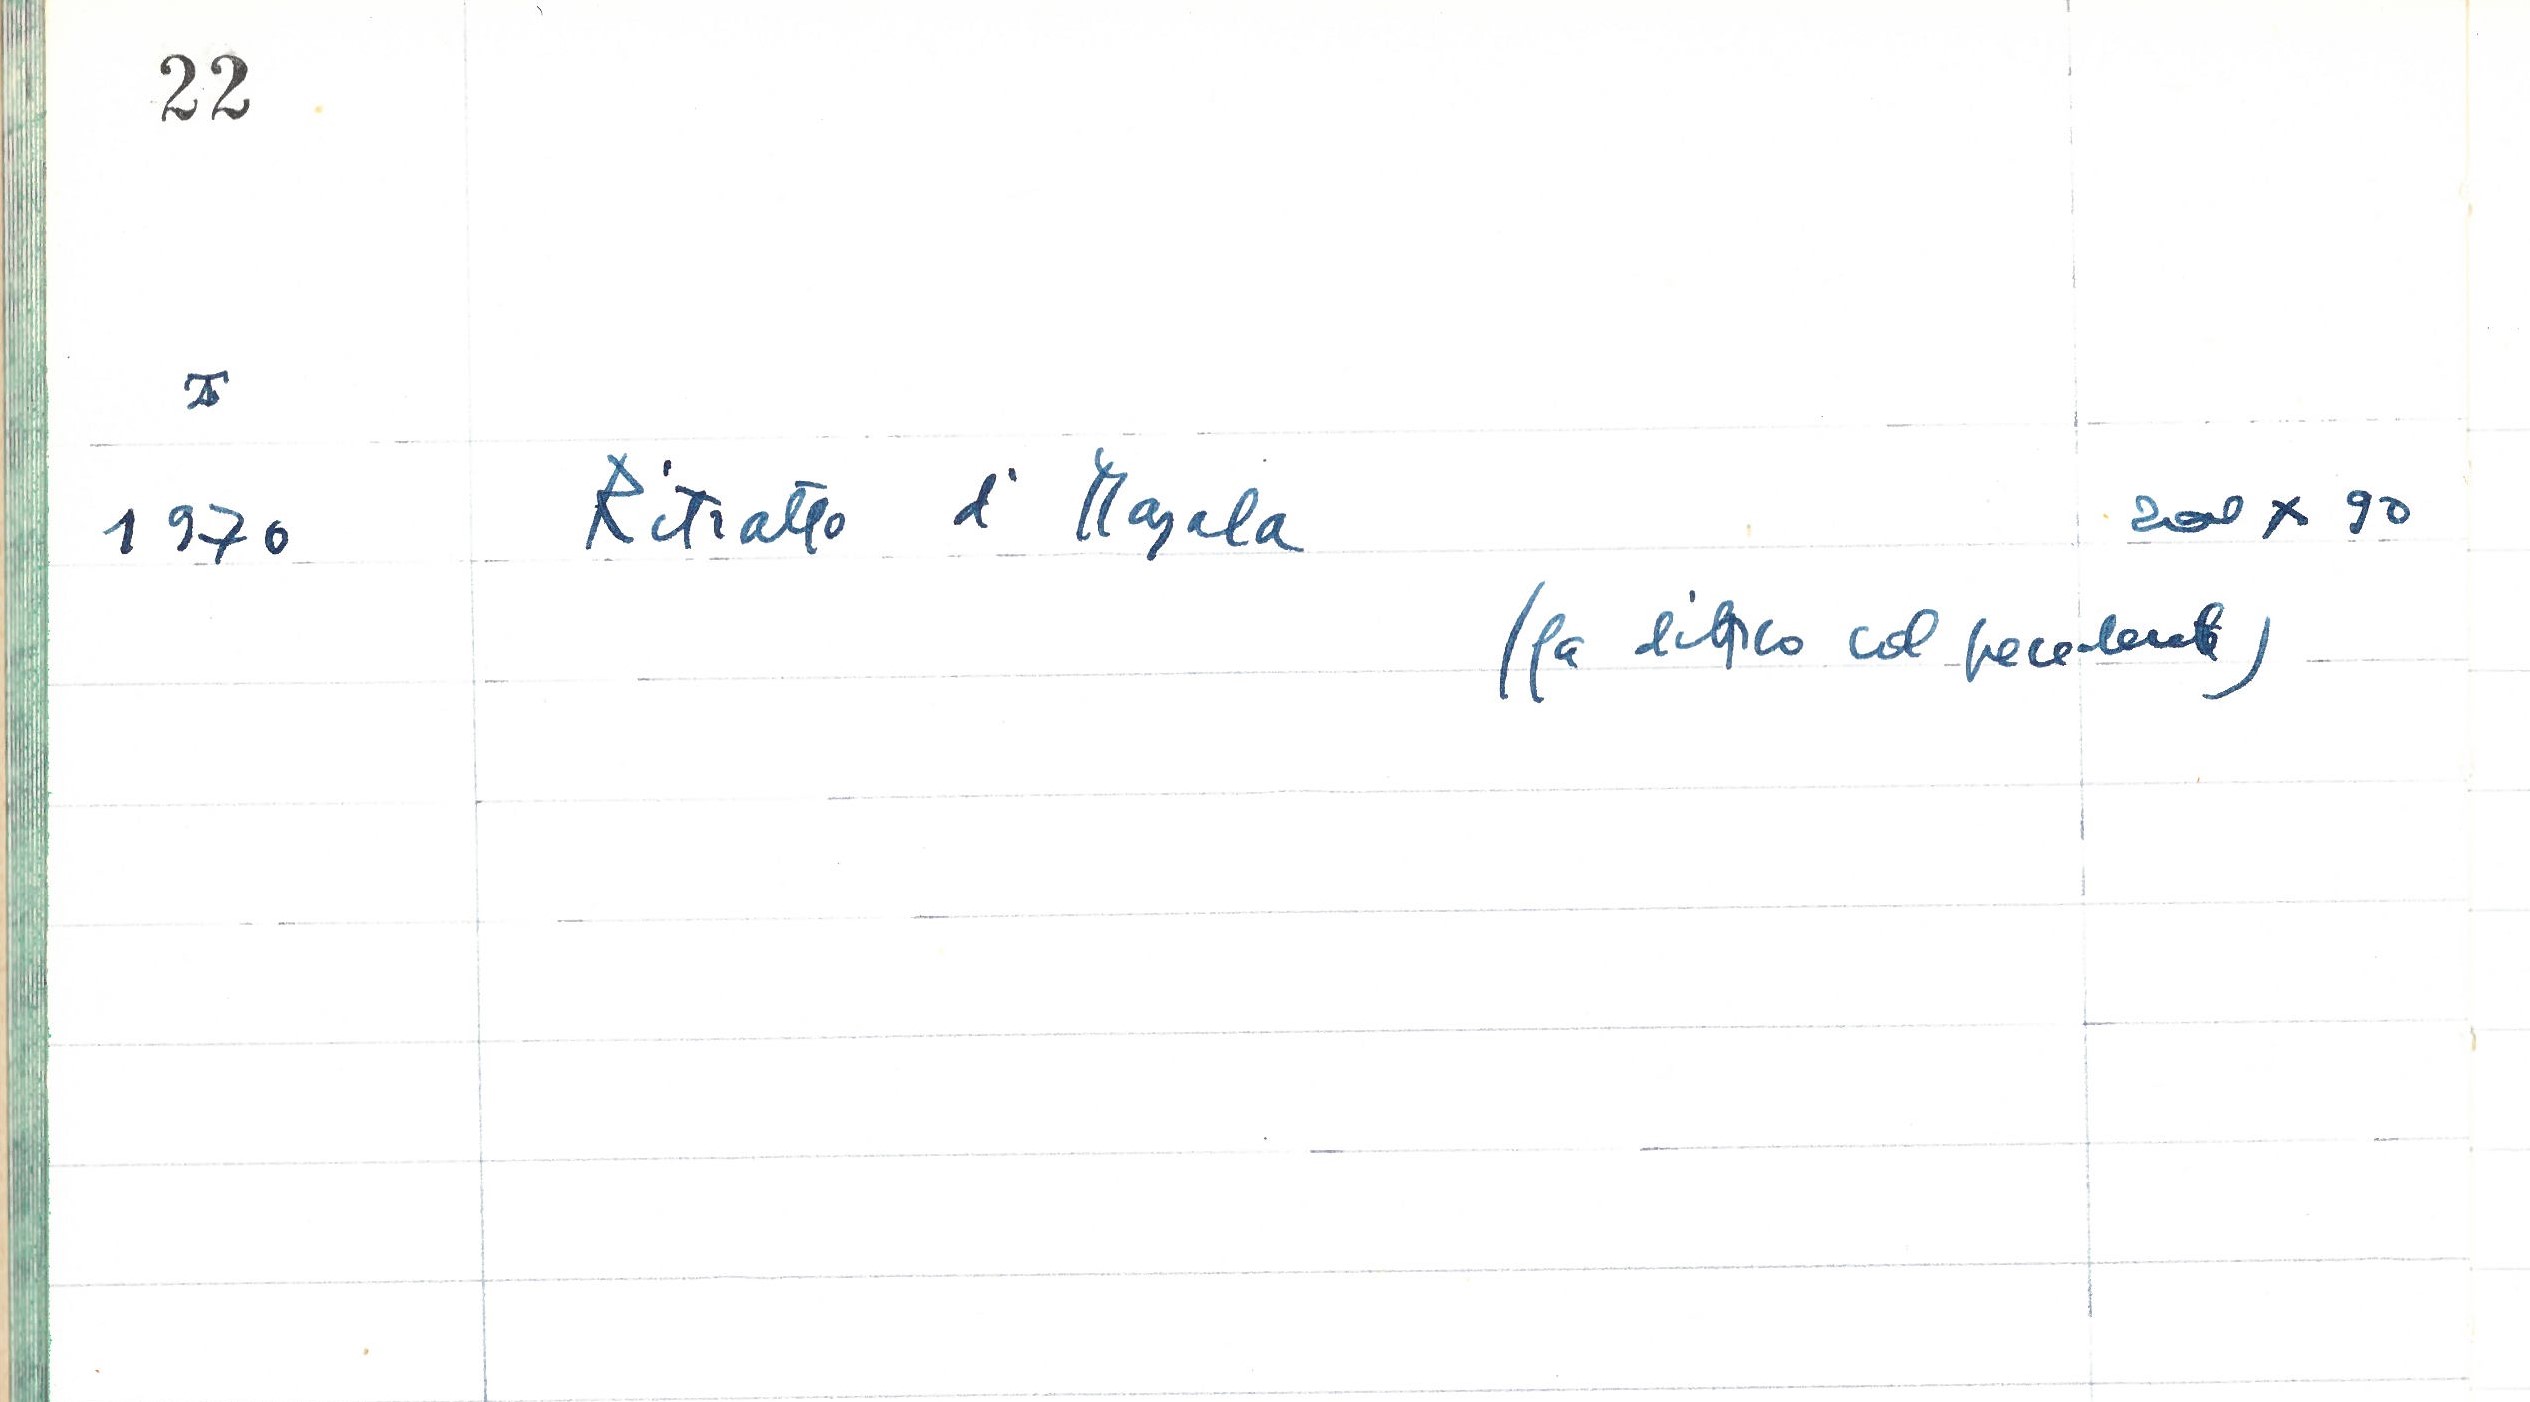 22
1970 Ritratto di Mazala 200 x 90
(fa dittico col precedente)